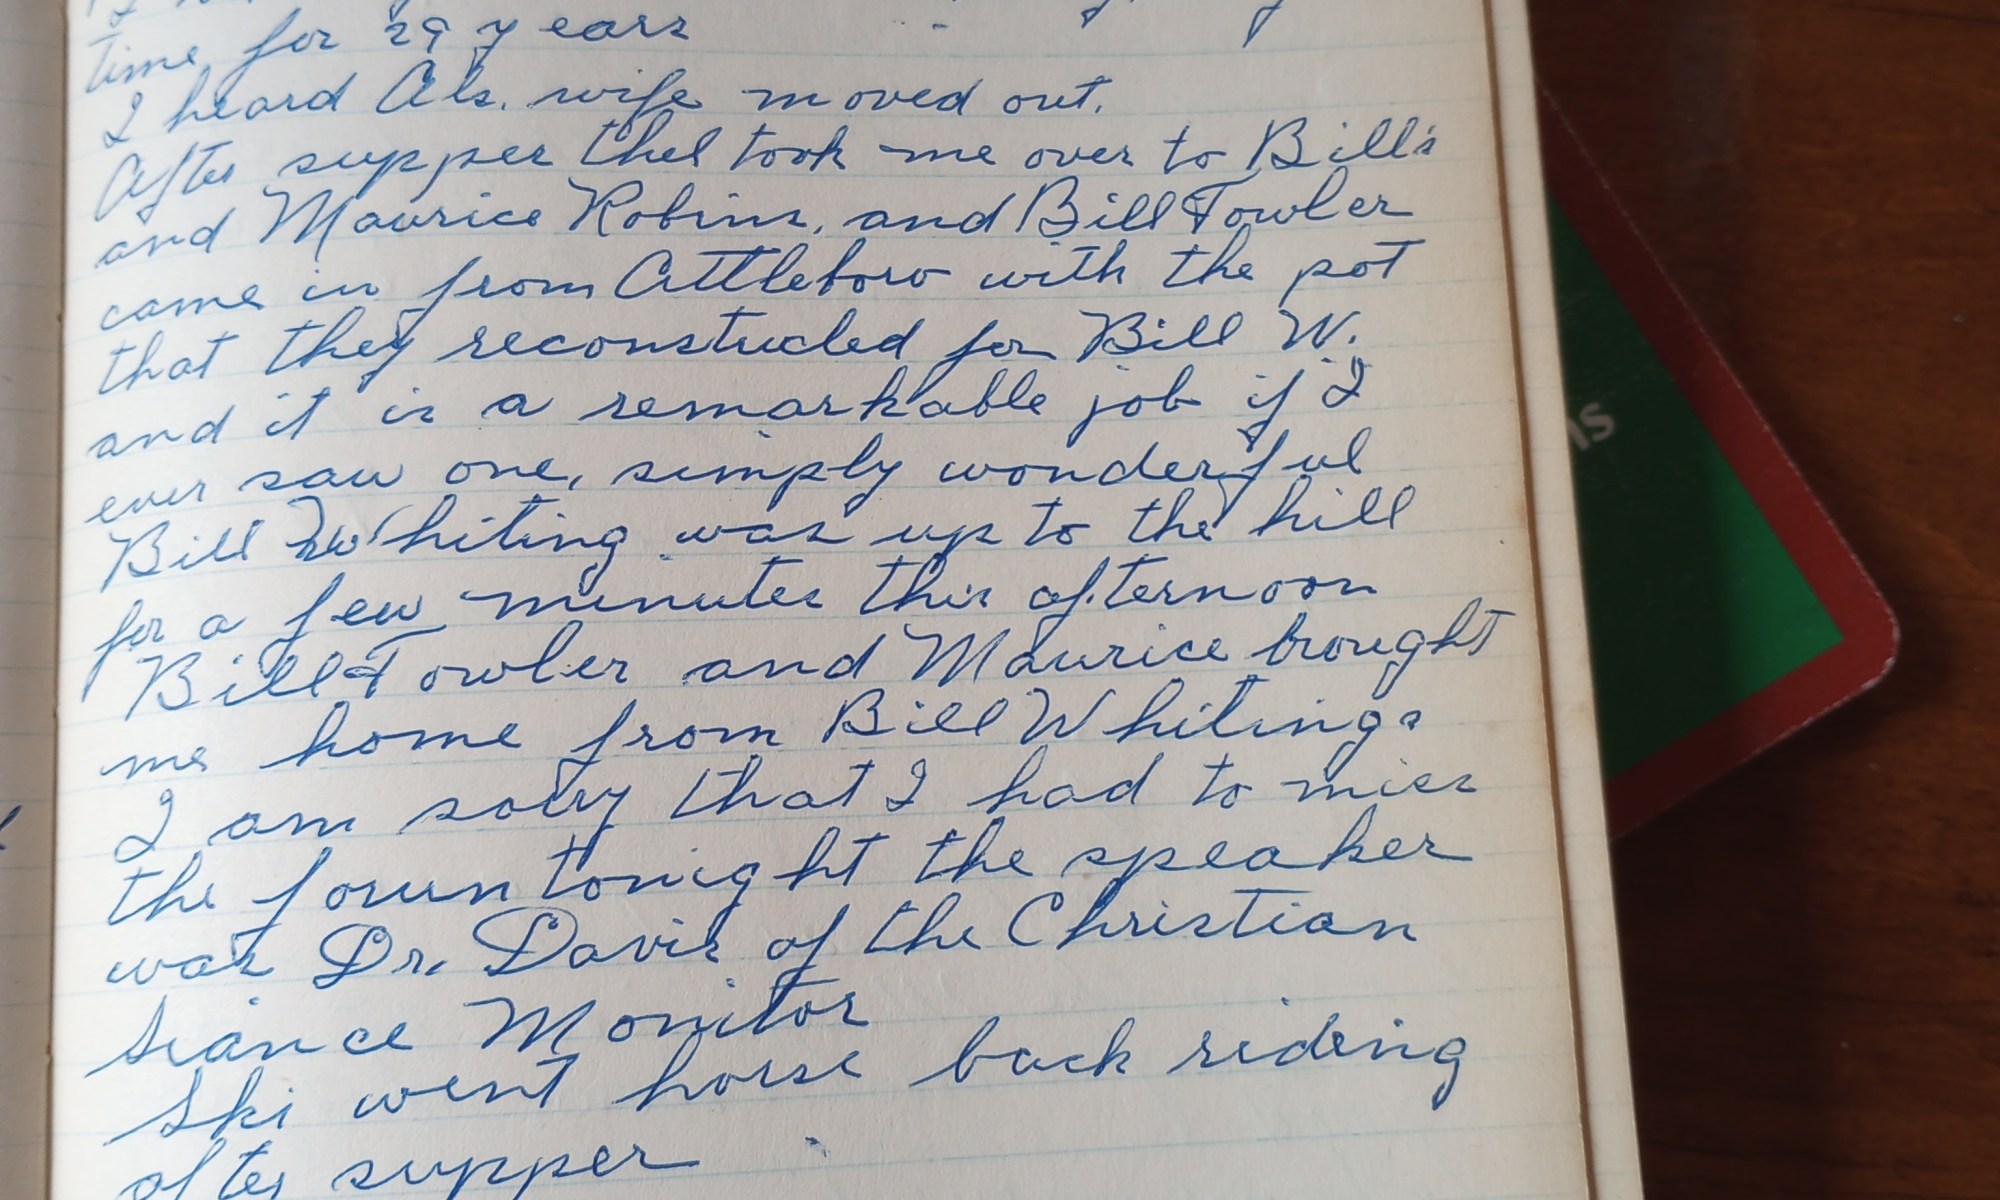 time for 29 years
I heard Als. wife moved out.
After supper thel took me over to Bill's
and Maurice Robins, and Bill Fowler
came in from Attleboro with the pot
that they reconstucled for Bill W.
and it is a remarkable job if I
ever saw one, simply wonderful
Bill Whiting was up to the hill
for a few minutes this afternoon
Bill Fowler and Maurice brought
me home from Bill Whitings
I am sorry that I had to miss
the forum tonight the speaker
was Dr. Davis of the Christian
Siance Monitor
Ski went horse back riding
after supper